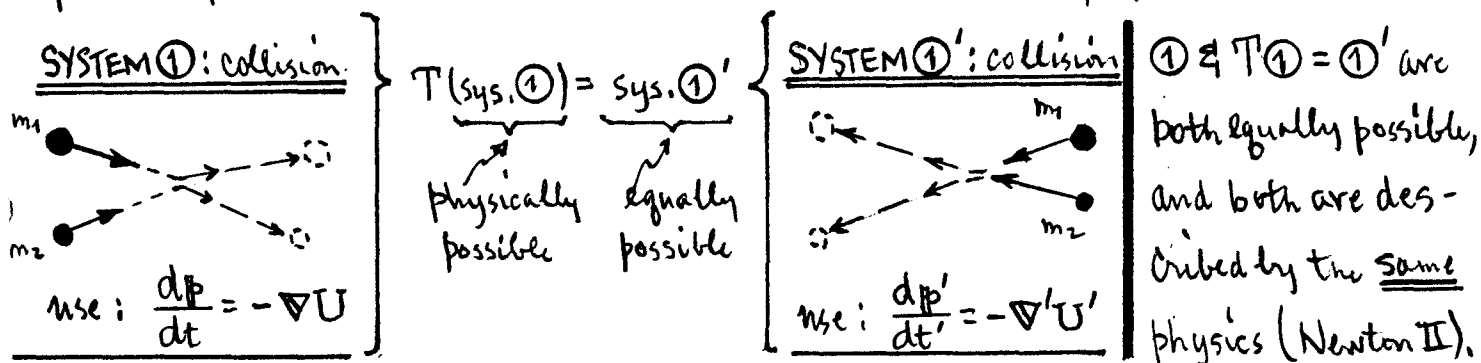 SYSTEM ①: collision.
m₁
m₂
use: dp/dt = -∇U
T(sys.①) = sys.①′
physically possible
equally possible
SYSTEM ①′: collision
m₁
m₂
use: dp′/dt′ = -∇′U′
① & T① = ①′ are
both equally possible,
and both are des-
cribed by the same
physics (Newton II).